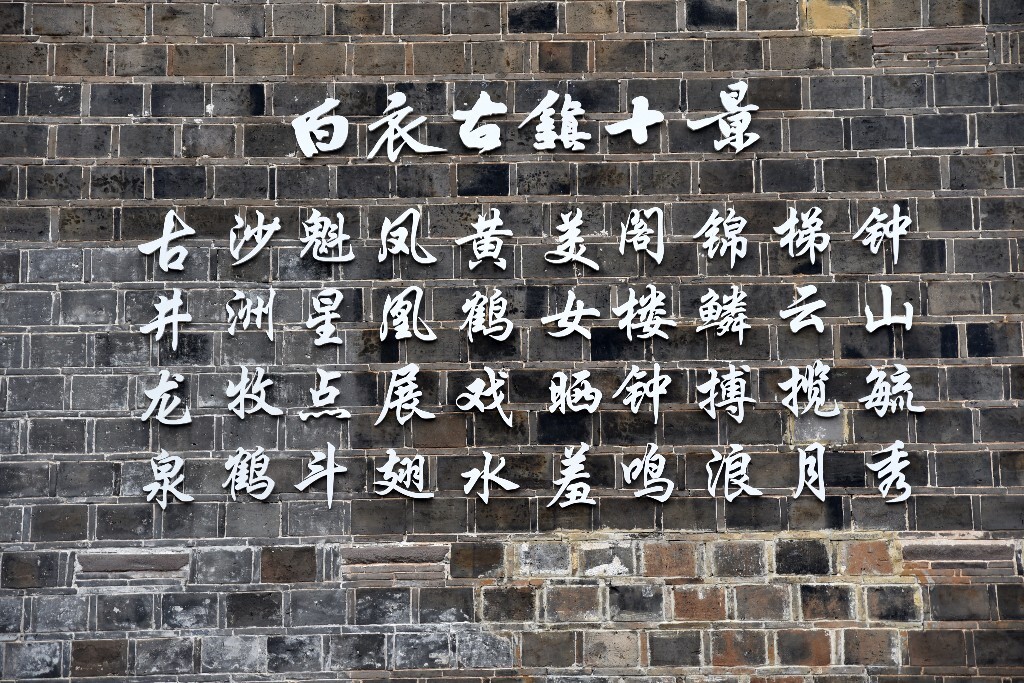 白衣古鎮十景
钟山毓秀
梯云揽月
锦鳞搏浪
阁楼钟鸣
美女晒羞
黄鹤戏水
凤凰展翅
魁星点斗
沙洲牧鹤
古井龙泉